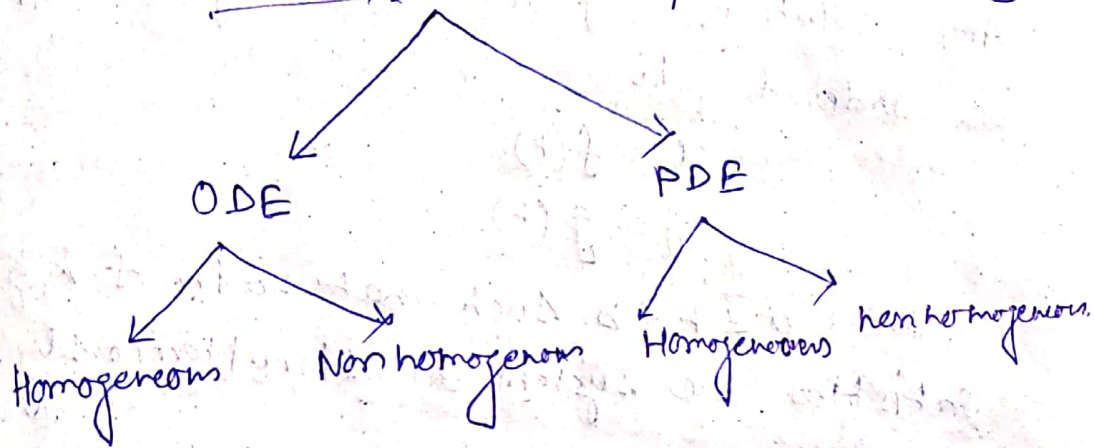 ODE
PDE
Homogeneous
Non homogenous
Homogeneous
non homogeneous.